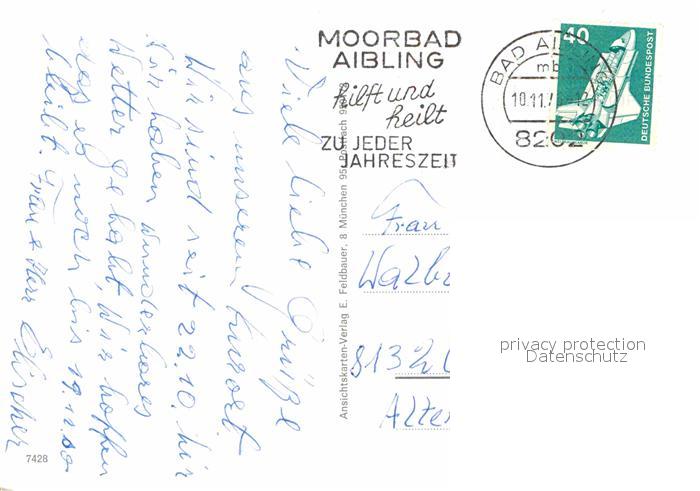 Viele liebe Grüße
aus unserem Kurort.
Wir sind seit 22.10. hir
Wir haben wunderbares
Wetter gehabt, Wir hoffen
das es noch bis 19.11. so
bleibt. Frau & Herr
MOORBAD
AIBLING
hilft und
heilt
ZU JEDER
JAHRESZEIT
BAD AIBLING
mb
10.11.
8202
40
DEUTSCHE BUNDESPOST
Frau
Walb
813
Alte
privacy protection
Datenschutz
Ansichtskarten-Verlag E. Feldbauer, 8 München 95, Postfach 9
7428